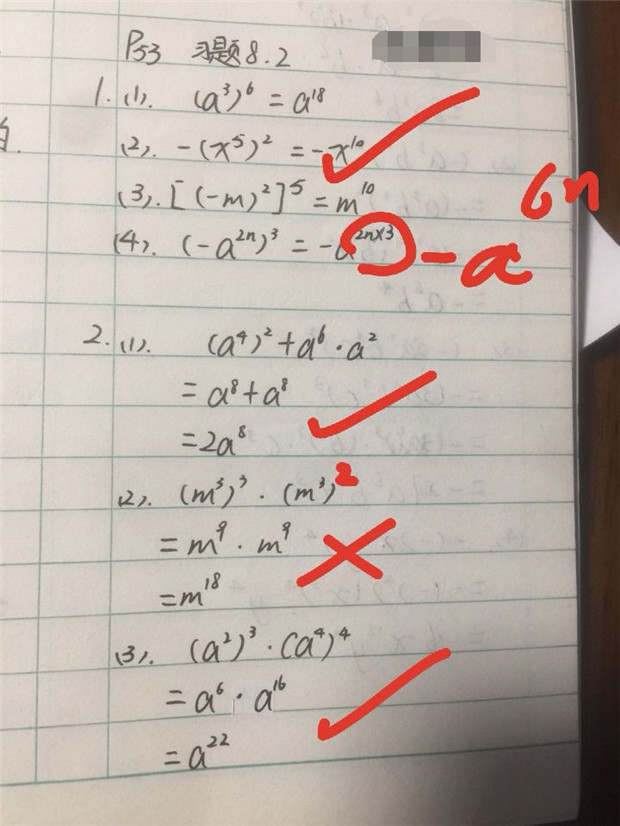 P53 习题8.2
1.(1). (a³)⁶ = a¹⁸
(2). -(x⁵)² = -x¹⁰
(3). [(-m)²]⁵ = m¹⁰
(4). (-a²ⁿ)³ = -a²ⁿˣ³ -a⁶ⁿ
2.(1). (a⁴)² + a⁶·a²
= a⁸ + a⁸
= 2a⁸
(2). (m³)³·(m³)²
= m⁹·m⁹
= m¹⁸
(3). (a²)³·(a⁴)⁴
= a⁶·a¹⁶
= a²²